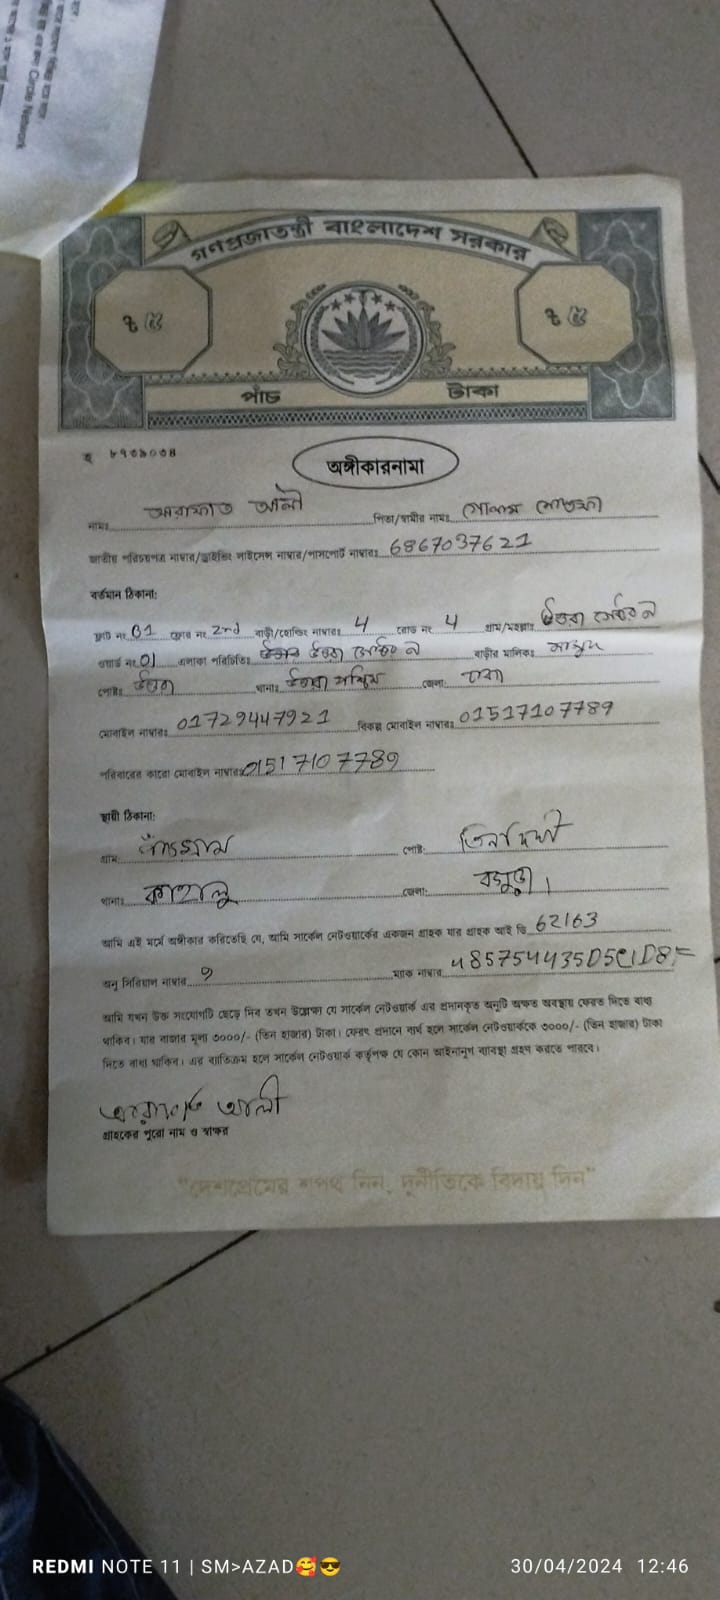 Circle Network
গণপ্রজাতন্ত্রী বাংলাদেশ সরকার
৳ ৫ ৳ ৫
পাঁচ টাকা
অঙ্গীকারনামা
নামঃ আরাফাত আলী পিতা/স্বামীর নামঃ গোলাম মোস্তফা
জাতীয় পরিচয়পত্র নাম্বার/ড্রাইভিং লাইসেন্স নাম্বার/পাসপোর্ট নাম্বারঃ 6867037621
বর্তমান ঠিকানা:
ফ্লাট নং B1 ফ্লোর নং 2nd বাড়ী/হোল্ডিং নাম্বারঃ 4 রোড নং 4 গ্রাম/মহল্লাঃ উত্তরা সেক্টর ৯
ওয়ার্ড নং 01 এলাকা পরিচিতিঃ উত্তরা সেক্টর ৯ বাড়ীর মালিকঃ
পোষ্টঃ উত্তরা থানাঃ উত্তরা পশ্চিম জেলা: ঢাকা
মোবাইল নাম্বারঃ 01729447921 বিকল্প মোবাইল নাম্বারঃ 01517107789
পরিবারের কারো মোবাইল নাম্বারঃ 01517107789
স্থায়ী ঠিকানা:
গ্রাম: পোষ্ট:
থানাঃ কাহালু জেলা: বগুড়া।
আমি এই মর্মে অঙ্গীকার করিতেছি যে, আমি সার্কেল নেটওয়ার্কের একজন গ্রাহক যার গ্রাহক আই ডি 62163
অনু সিরিয়াল নাম্বার 9 ম্যাক নাম্বার 485754435D5C1D8F
আমি যখন উক্ত সংযোগটি ছেড়ে দিব তখন উল্লেক্ষ্য যে সার্কেল নেটওয়ার্ক এর প্রদানকৃত অনুটি অক্ষত অবস্থায় ফেরত দিতে বাধ্য
থাকিব। যার বাজার মূল্য ৩০০০/- (তিন হাজার) টাকা। ফেরৎ প্রদানে ব্যর্থ হলে সার্কেল নেটওয়ার্ককে ৩০০০/- (তিন হাজার) টাকা
দিতে বাধ্য থাকিব। এর ব্যতিক্রম হলে সার্কেল নেটওয়ার্ক কর্তৃপক্ষ যে কোন আইনানুগ ব্যবস্থা গ্রহণ করতে পারবে।
আরাফাত আলী
গ্রাহকের পুরো নাম ও স্বাক্ষর
"দেশপ্রেমের শপথ নিন, দুর্নীতিকে বিদায় দিন"
REDMI NOTE 11 | SM>AZAD🥰😎 30/04/2024 12:46